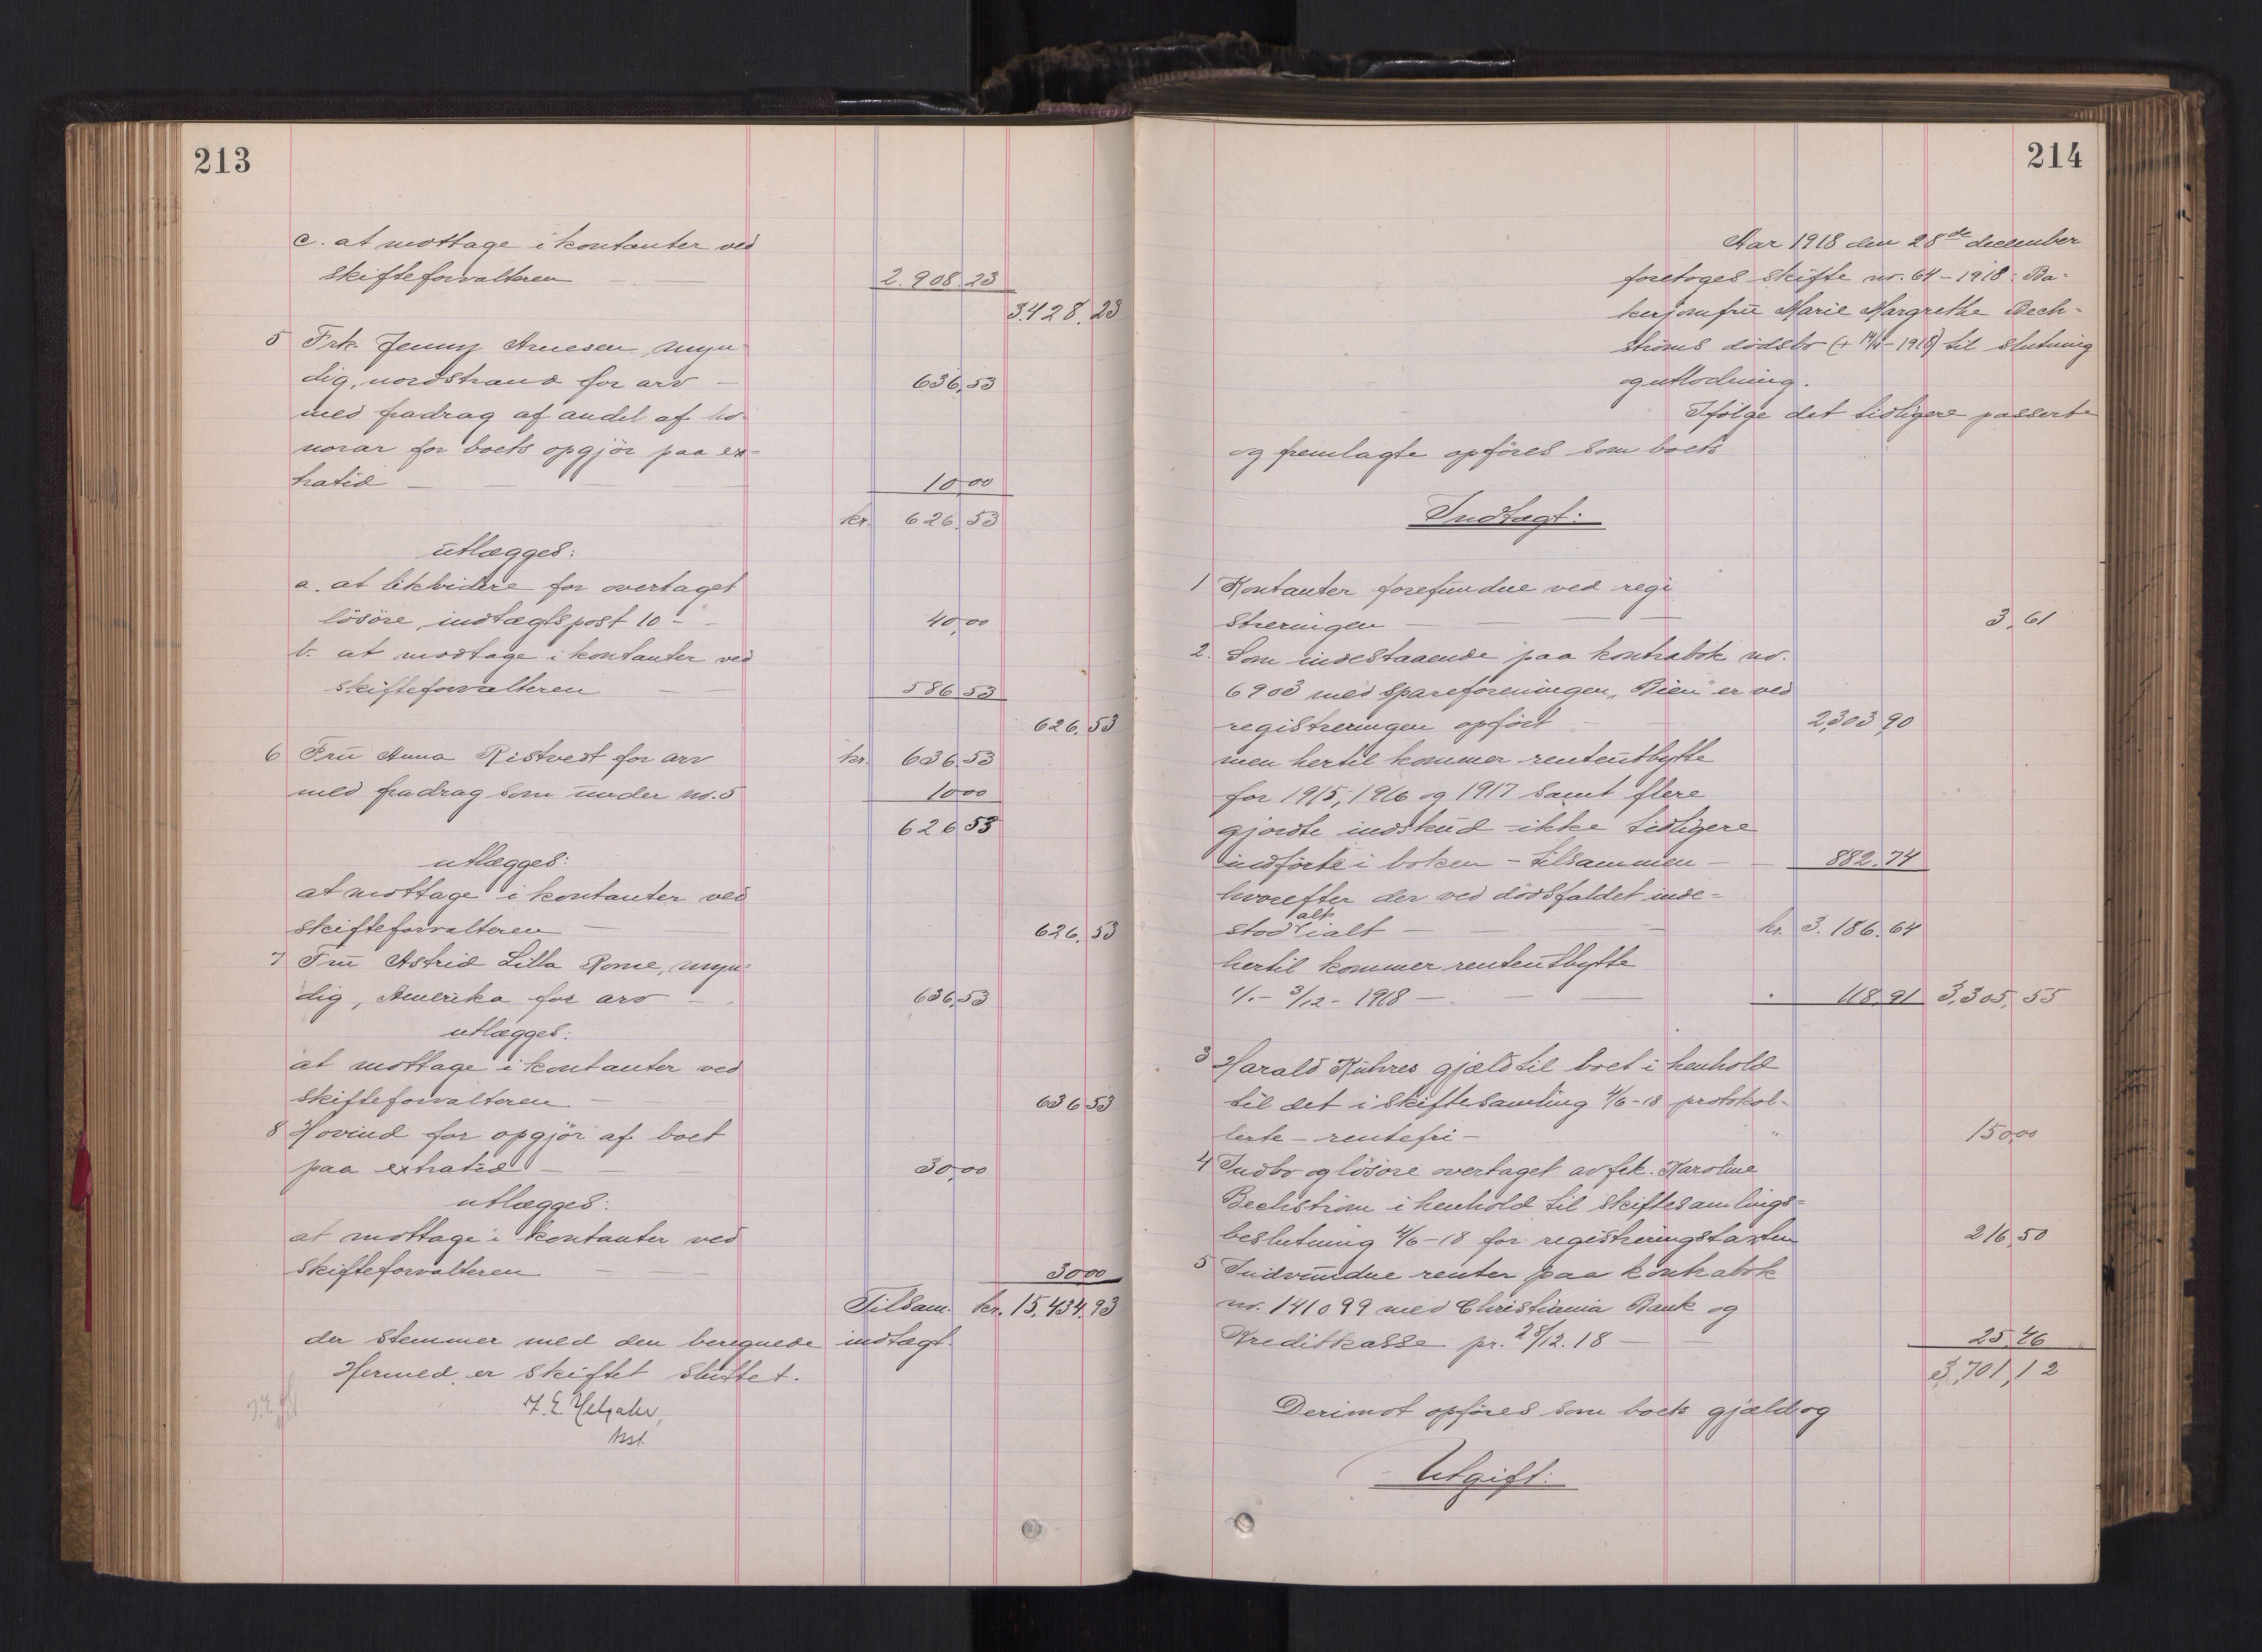 213
c. at mottage i kontanter ved
skifteforvalteren 2.908.23
3.428.23
5 Frk. Jenny Arnesen, myn-
dig, nordstrand for arv - 636,53
med fradrag af andel af ho-
norar for boets opgjör paa ex-
tratid 10,00
kr. 626,53
utlægges:
a. at likvidere for overtaget
lösöre, indtægtspost 10 - 40,00
b. at modtage i kontanter ved
skifteforvalteren 586,53
626,53
6 Fru Anna Ristvedt for arv kr. 636,53
med fradrag som under no. 5 10,00
626,53
utlægges:
at mottage i kontanter ved
skifteforvalteren 626,53
7 Fru Astrid Lilla Rome, myn-
dig, Amerika for arv - 636,53
utlægges:
at mottage i kontanter ved
skifteforvalteren 636,53
8 Hovind for opgjör af boet
paa extratid 30,00
utlægges:
at mottage i kontanter ved
skifteforvalteren 30,00
Tilsam. kr. 15,434,93
der stemmer med den beregnede indtægt.
Hermed er skiftet sluttet.
214
Aar 1918 den 28de december
foretoges skifte no. 64 - 1918: Ba-
kerjomfru Marie Margrethe Bech-
ströms dödsbo (+ 14/4 - 1918) til slutning
og utlodning.
Ifölge det tidligere passerte
og fremlagte opföres som boets
Indtægt:
1 Kontanter forefundne ved regi
streringen 3,61
2. Som indestaaende paa kontrabok no.
6903 med Spareforeningen „Bien" er ved
registreringen opfört 2,303,90
men hertil kommer renteutbytte
for 1915, 1916 og 1917 samt flere
gjordte indskud - ikke tidligere
indförte i boken - tilsammen - 882.74
hvorefter der ved dödsfaldet inde-
stod alt ialt - kr. 3.186.64
hertil kommer renteutbytte
1/1 - 3/12 - 1918 - 118,91 3,305,55
3 Harald Kuhres gjæld til boet i henhold
til det i skiftesamling 4/6-18 protokol-
lerte - rentefri - " 150,00
4 Indbo og lösöre overtaget av frk. Karoline
Bechström i henhold til skiftesamlings-
beslutning 4/6-18 for registreringstaxten 216,50
5 Indvundne renter paa kontrabok
no. 141099 med Christiania Bank og
Kreditkasse pr. 28/12.18 - 25,46
3,701,12
Derimot opföres som boets gjæld og
Utgift: